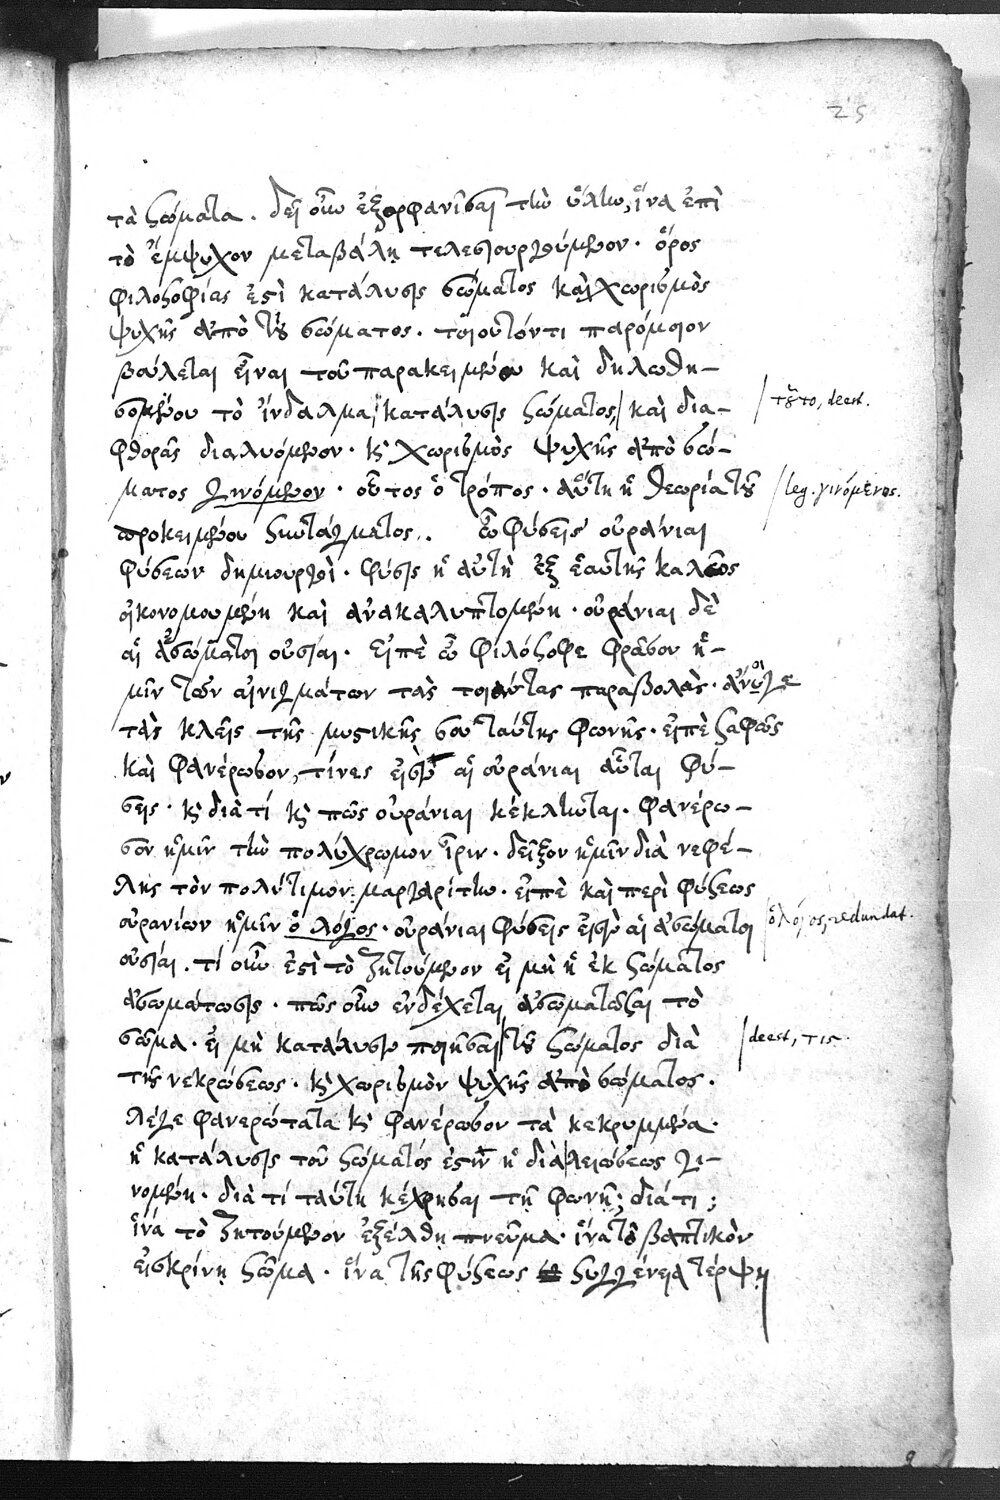 25
τὰ σώματα. δεῖ οὖν ἐξορφανίσαι τὴν ὕλην, ἵνα ἐπὶ
τὸ ἔμψυχον μεταβάλῃ τελεσιουργούμενον. ὅρος
φιλοσοφίας ἐστὶ κατάλυσις σώματος καὶ χωρισμὸς
ψυχῆς ἀπὸ τοῦ σώματος. τοιουτόντι παρόμοιον
βούλεται εἶναι τοῦ παρακειμένου καὶ δηλωθη-
σομένου τὸ ἴνδαλμα, κατάλυσις σώματος, καὶ δια-
τοῦτο, deest.
φθορᾶς διαλυόμενον. καὶ χωρισμὸς ψυχῆς ἀπὸ σώ-
ματος γινόμενον. οὗτος ὁ τρόπος. αὕτη ἡ θεωρία τοῦ
leg. γινόμενος.
προκειμένου σκυτάγματος. ὦ φύσεις οὐράνιαι
φύσεων δημιουργοὶ. φύσις ἡ αὐτὴ ἐξ ἑαυτῆς καλῶς
οἰκονομουμένη καὶ ἀνακαλυπτομένη. οὐράνιαι δὲ
αἱ ἀσώματοι οὐσίαι. εἰπὲ ὦ φιλόσοφε φράσον ἡ-
μῖν τῶν αἰνιγμάτων τὰς τοιαύτας παραβολὰς. ἄνοιγε
τὰς κλεῖς τῆς μυστικῆς σου ταύτης φωνῆς. εἰπὲ σαφῶς
καὶ φανέρωσον, τίνες εἰσὶν αἱ οὐράνιαι αὗται φύ-
σεις. καὶ διὰ τί καὶ πῶς οὐράνιαι κέκληνται. φανέρω-
σον ἡμῖν τὴν πολύχρωμον ἶριν. δεῖξον ἡμῖν διὰ νεφέ-
λης τὸν πολύτιμον μαργαρίτην. εἰπὲ καὶ περὶ φύσεως
οὐρανίων ἡμῖν ὁ λόγος. οὐράνιαι φύσεις εἰσὶν αἱ ἀσώματοι
ὁ λόγος, redundat.
οὐσίαι. τί οὖν ἐστὶ τὸ ζητούμενον εἰ μὴ ἡ ἐκ σώματος
ἀσωμάτωσις. πῶς οὖν ἐνδέχεται ἀσωματῶσαι τὸ
σῶμα. εἰ μὴ κατάλυσιν ποιῆσαι τοῦ σώματος διὰ
deest, τις
τῆς νεκρώσεως. καὶ χωρισμὸν ψυχῆς ἀπὸ σώματος.
λέγε φανερώτατα καὶ φανέρωσον τὰ κεκρυμμένα.
ἡ κατάλυσις τοῦ σώματός ἐστιν ἡ διὰ λειώσεως γι-
νομένη. διὰ τί ταύτῃ κέχρησαι τῇ φωνῇ; διάτι;
ἵνα τὸ ζητούμενον ἐξέλθῃ πνεῦμα. ἵνα τὸ βαπτικὸν
εἰσκρίνῃ σῶμα. ἵνα τῆς φύσεως συγγένεια τέρψῃ